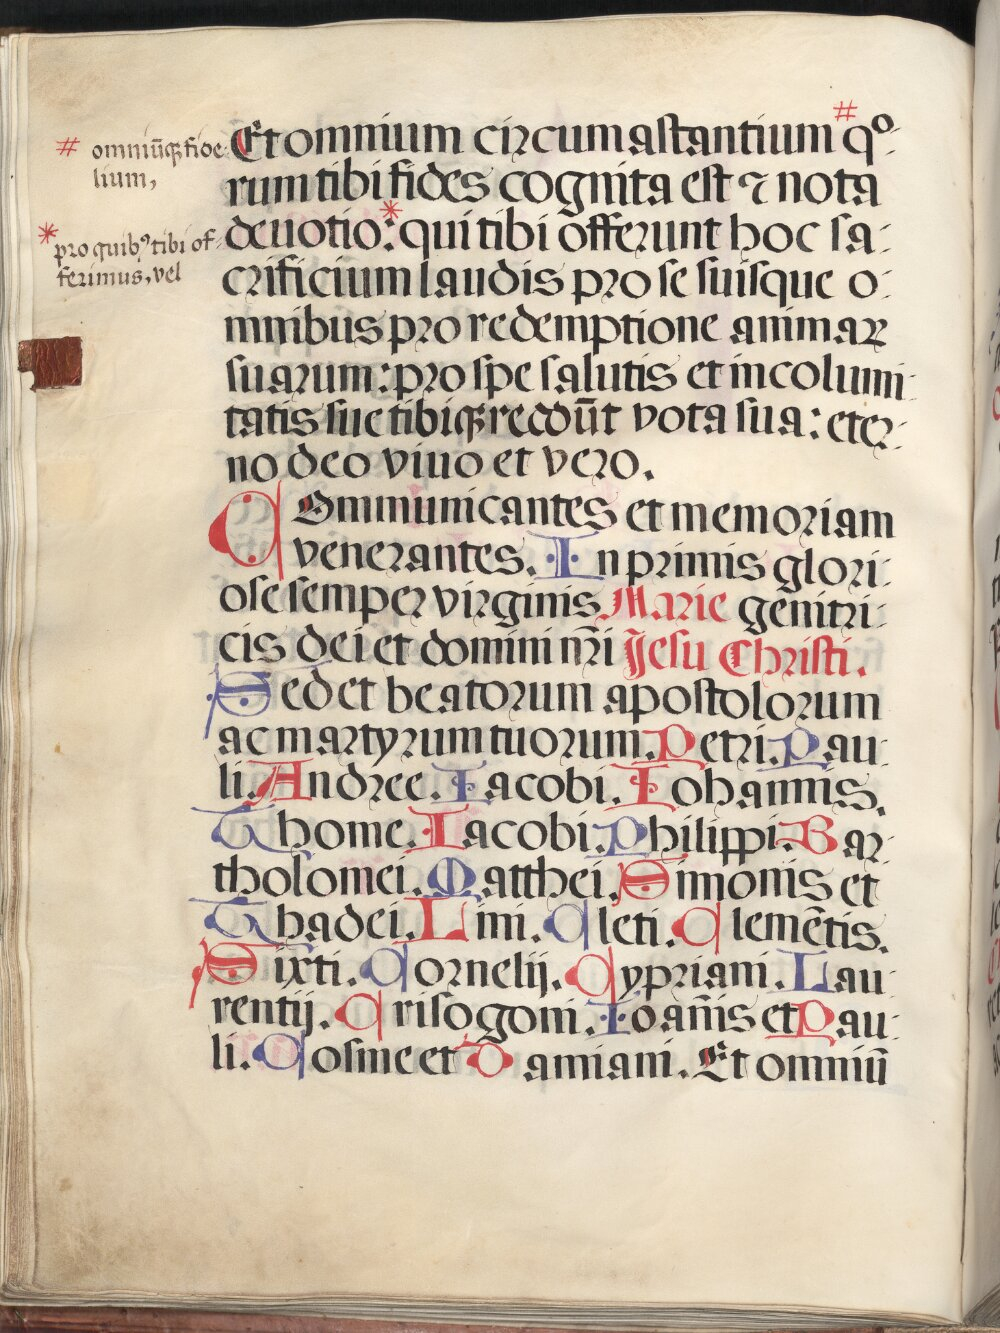 # omniūq; fide
lium,
* pro quibꝰ tibi of-
ferimus, vel
Et omnium circumastantium # qͦ-
rum tibi fides cognita est ⁊ nota
deuotio: * qui tibi offerunt hoc sa-
crificium laudis pro se suisque o-
mnibus pro redemptione animaꝝ
suarum: pro spe salutis et incolumi-
tatis sue tibiq; reddūt vota sua: eter-
no deo viuo et vero.
Communicantes et memoriam
venerantes. In primis glori-
ose semper virginis Marie genitri-
cis dei et domini nr̄i Jesu Christi.
Sed et beatorum apostolorum
ac martyrum tuorum. Petri. Pau-
li. Andree. Iacobi. Iohannis.
Thome. Iacobi. Philippi. Bar-
tholomei. Matthei. Simonis et
Thadei. Lini. Cleti. Clemētis.
Sixti. Cornelij. Cypriani. Lau-
rentij. Crisogoni. Ioan̄is et Pau-
li. Cosme et Damiani. Et omniū